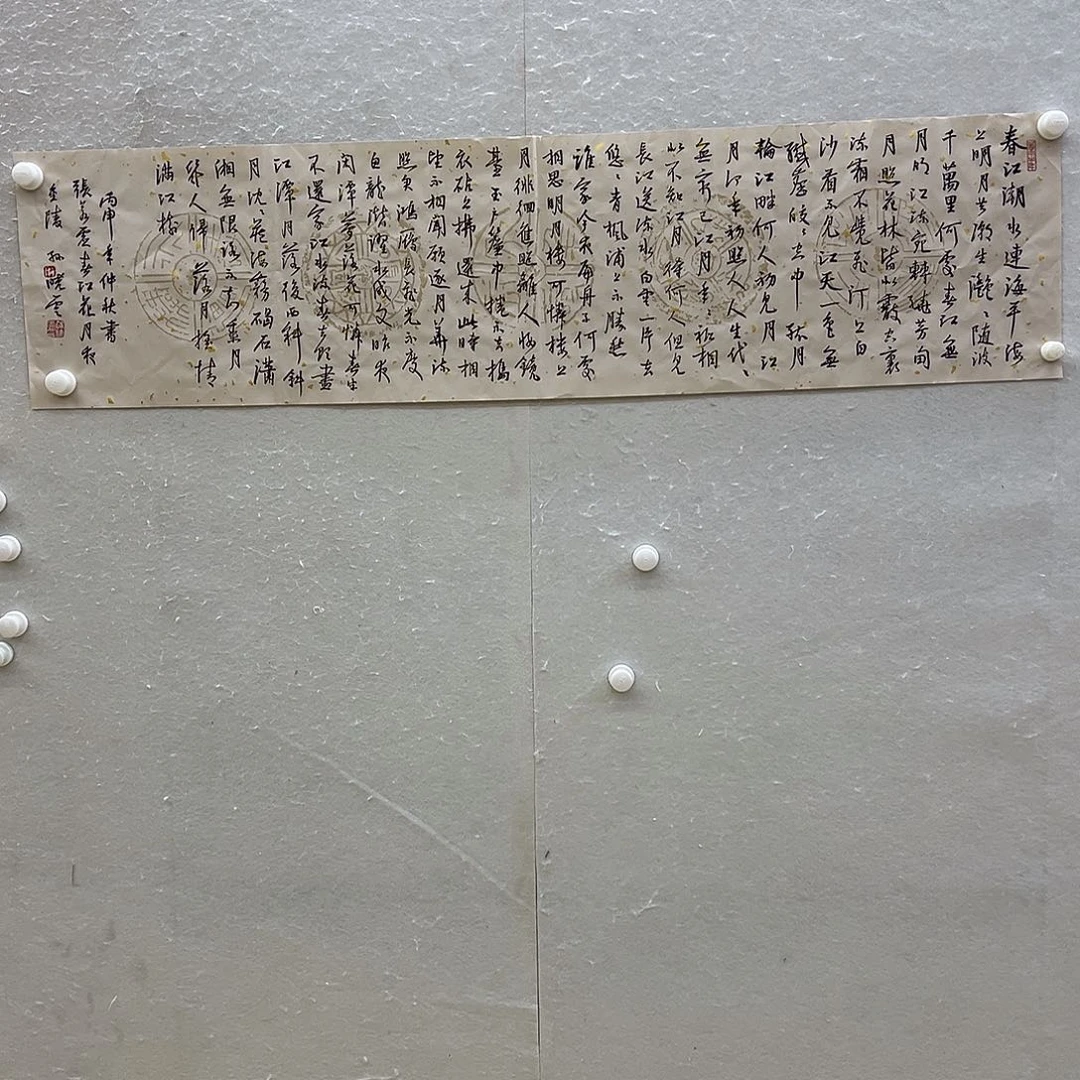 春江潮水連海平海
上明月共潮生灩〻随波
千萬里何處春江無
月明江流宛轉繞芳甸
月照花林皆似霰空裏
流霜不覺飛汀上白
沙看不見江天一色無
纖塵皎〻空中孤月
輪江畔何人初見月江
月何年初照人人生代〻
無窮已江月年〻祗相
似不知江月待何人但見
長江送流水白雲一片去
悠〻青楓浦上不勝愁
誰家今夜扁舟子何處
相思明月楼可憐楼上
月徘徊應照離人妝鏡
臺玉戶簾中捲不去搗
衣砧上拂還來此時相
望不相聞願逐月華流
照君鴻雁長飛光不度
魚龍潛躍水成文昨夜
閑潭夢落花可憐春半
不還家江水流春去欲盡
江潭月落復西斜斜
月沈〻藏海霧碣石瀟
湘無限路不知乘月
幾人歸落月搖情
滿江樹
丙申年仲秋書
張若虛春江花月夜
金陵 孫曉雲